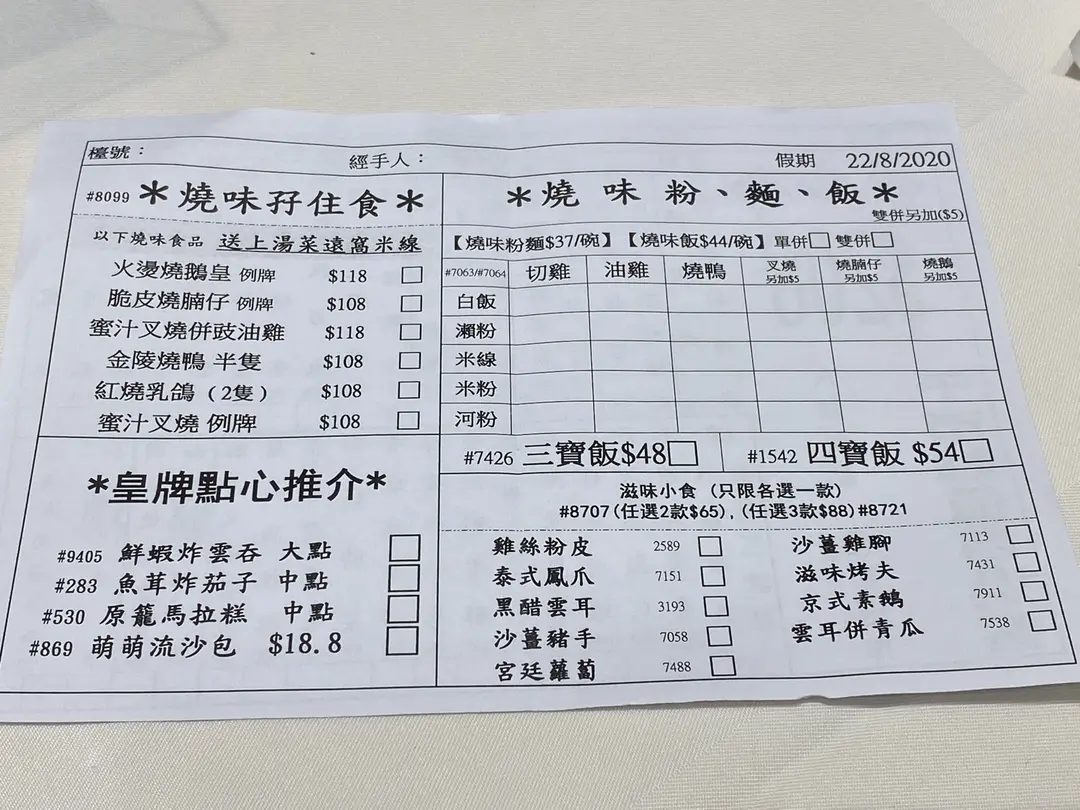 檯號：
經手人：
假期 22/8/2020
#8099 *燒味孖住食*
以下燒味食品 送上湯菜遠窩米線
火燙燒鵝皇 例牌 $118
脆皮燒腩仔 例牌 $108
蜜汁叉燒併豉油雞 $118
金陵燒鴨 半隻 $108
紅燒乳鴿（2隻） $108
蜜汁叉燒 例牌 $108
*燒味粉、麵、飯*
雙併另加($5)
【燒味粉麵$37/碗】【燒味飯$44/碗】單併 雙併
#7063/#7064 切雞 油雞 燒鴨 叉燒 另加$5 燒腩仔 另加$5 燒鵝 另加$5
白飯
瀨粉
米線
米粉
河粉
#7426 三寶飯$48
#1542 四寶飯 $54
*皇牌點心推介*
#9405 鮮蝦炸雲吞 大點
#283 魚茸炸茄子 中點
#530 原籠馬拉糕 中點
#869 萌萌流沙包 $18.8
滋味小食（只限各選一款）
#8707(任選2款$65),(任選3款$88)#8721
雞絲粉皮 2589
泰式鳳爪 7151
黑醋雲耳 3193
沙薑豬手 7058
宮廷蘿蔔 7488
沙薑雞腳 7113
滋味烤夫 7431
京式素鵝 7911
雲耳併青瓜 7538